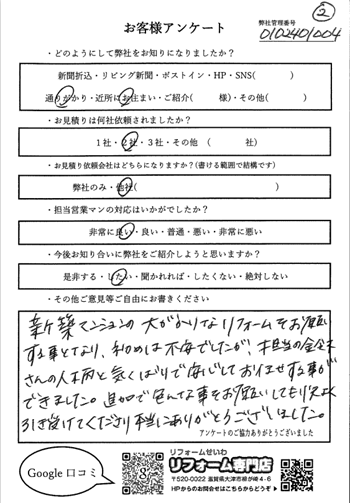 ②
お客様アンケート
弊社管理番号
0102401004
・どのようにして弊社をお知りになりましたか？
新聞折込・リビング新聞・ポストイン・HP・SNS(　　　)
通りがかり・近所にお住まい・ご紹介(　　　様)・その他(　　　)
・お見積りは何社依頼されましたか？
1社・2社・3社・その他　(　　　社)
・お見積り依頼会社はどちらになりますか？(書ける範囲で結構です)
弊社のみ・他社(　　　)
・担当営業マンの対応はいかがでしたか？
非常に良い・良い・普通・悪い・非常に悪い
・今後お知り合いに弊社をご紹介しようと思いますか？
是非する・したい・聞かれれば・したくない・絶対しない
・その他ご意見等ご自由にお書きください
新築マンションの大がかりなリフォームをお願い
する事となり、初めは不安でしたが、担当の
さんの人柄と気くばりで安心しておまかせする事が
できました。追加で色んな事をお願いしても
引き受けてくださり本当にありがとうございました。
アンケートのご協力ありがとうございました
Google 口コミ
リフォームせいわ
リフォーム専門店
〒520-0022 滋賀県大津市柳が崎4-6
HPからのお問合せはこちらからどうぞ